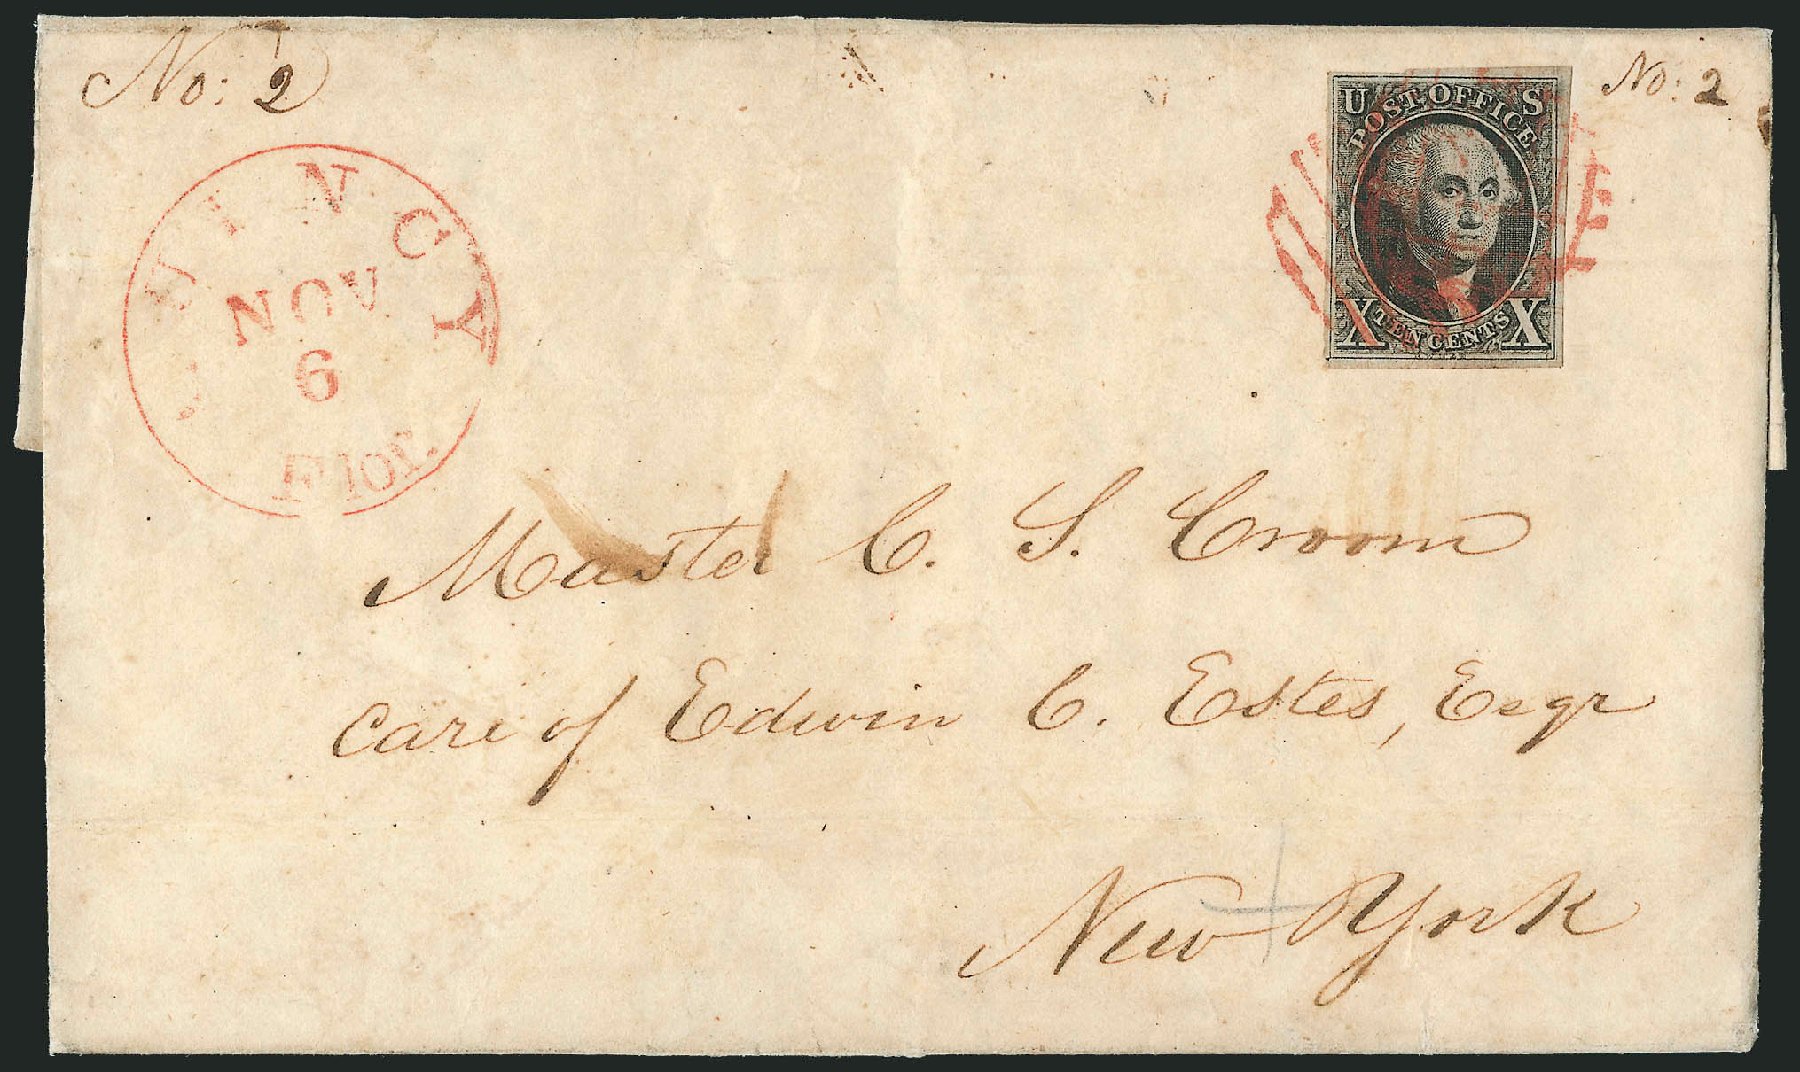 No: 2
No: 2
U S
POST OFFICE
X TEN CENTS X
QUINCY
NOV
6
Flor.
Master C. S. Croom
Care of Edwin C. Estes, Esqr
New York